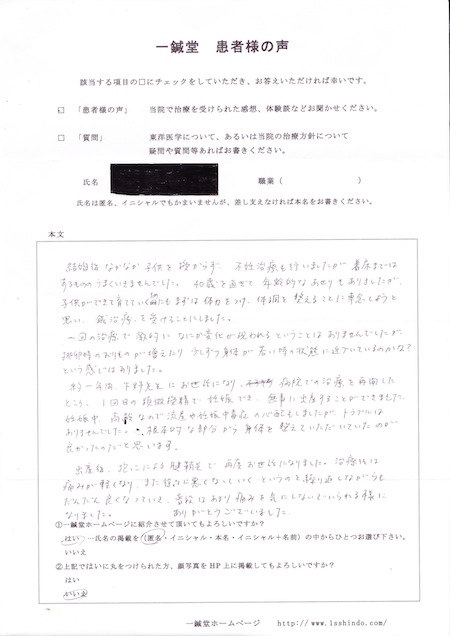 一鍼堂 患者様の声
該当する項目の□にチェックをしていただき、お答えいただければ幸いです。
☑ 「患者様の声」 当院で治療を受けられた感想、体験談などお聞かせください。
□ 「質問」 東洋医学について、あるいは当院の治療方針について
疑問や質問等あればお書きください。
氏名 職業( )
氏名は匿名、イニシャルでもかまいませんが、差し支えなければ本名をお書きください。
本文
結婚後なかなか子供を授からず、不妊治療も行いましたが着床までは
するもののうまくいきませんでした。40歳を過ぎて年齢的なあせりもありましたが、
子供ができて育てていく為にもまずは体力をつけ、体調を整えることに専念しようと
思い、鍼治療を受けることにしました。
一回の治療で劇的になにか変化が現われるということはありませんでしたが、
排卵時のおりものが増えたり少しずつ身体が若い時の状態に近づいているのかな?
という感じはありました。
約一年間、下野先生にお世話になり、病院での治療を再開した
ところ、1回目の顕微授精で妊娠でき、無事に出産することができました。
妊娠中、高齢なので流産や妊娠中毒症の心配もしましたがトラブルは
ありませんでした。根本的な部分から身体を整えていただいていたのが
良かったのだと思います。
出産後、抱っこによる腱鞘炎で再度お世話になりました。治療後は
痛みが軽くなり、また徐々に悪くなっていくというのを繰り返しながらも
だんだん良くなっていき、普段はあまり痛みを気にしないでいられる様に
なりました。 ありがとうございました
①一鍼堂ホームページに紹介させて頂いてもよろしいですか?
はい …氏名の掲載を(匿名・イニシャル・本名・イニシャル+名前)の中からひとつお選び下さい。
いいえ
②上記ではいに丸をつけられた方、顔写真をHP上に掲載してもよろしいですか?
はい
いいえ
一鍼堂ホームページ http://www.1sshindo.com/